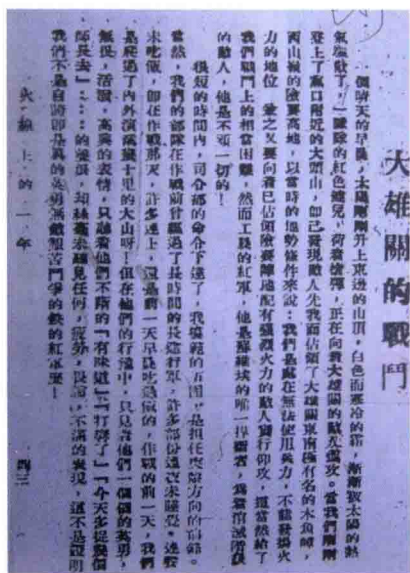 大雄關的戰鬥
一個晴天的早晨，太陽剛剛升上東邊的山頂，白色而寒冷的霜，漸漸被太陽的熱
氣溶散了，一隊隊的紅色健兒，荷着槍彈，正在向着大雄關的敵人猛攻。當我們剛剛
登上了關口附近的大頭山，即已發現敵人先我而佔領了大雄關東南極有名的木魚嶂，
西山嶺的險要高地，以當時的地勢條件來說：我們是處在無法使用兵力，不能發揚火
力的地位，並之又要向着已佔領險要陣地配有强烈火力的敵人實行仰攻，這當然給了
我們戰鬥上的相當困難，然而工農的紅軍，他是蘇維埃的唯一捍衞者，為着消滅階級
的敵人，他是不顧一切的！
很短的時間內，司令部的命令下達了，我模範的五團，是担任突擊方向的前鋒。
當然，我們的部隊在作戰前曾經過了長時間的長途行軍，許多部份通夜未睡覺，連飯
未吃頓，即在作戰那天，許多連上，還是前一天早晨吃過飯的，作戰的前一天，我們
是爬過了內外演湾幾十里的大山呀！但在他們的行進中，只見着他們一個個的英勇，
無畏，活潑，高興的表情，只聽着他們不斷的「有味道」「打響了」「今天多捉幾個
師長去」……的聲浪，却絲毫未顯見任何，疲勞，畏懼，不滿的表現，這不是證明
我們不是自誇即是真的英勇無敵艱苦鬥爭的鉄的紅軍麼！
火線上的一年
四三